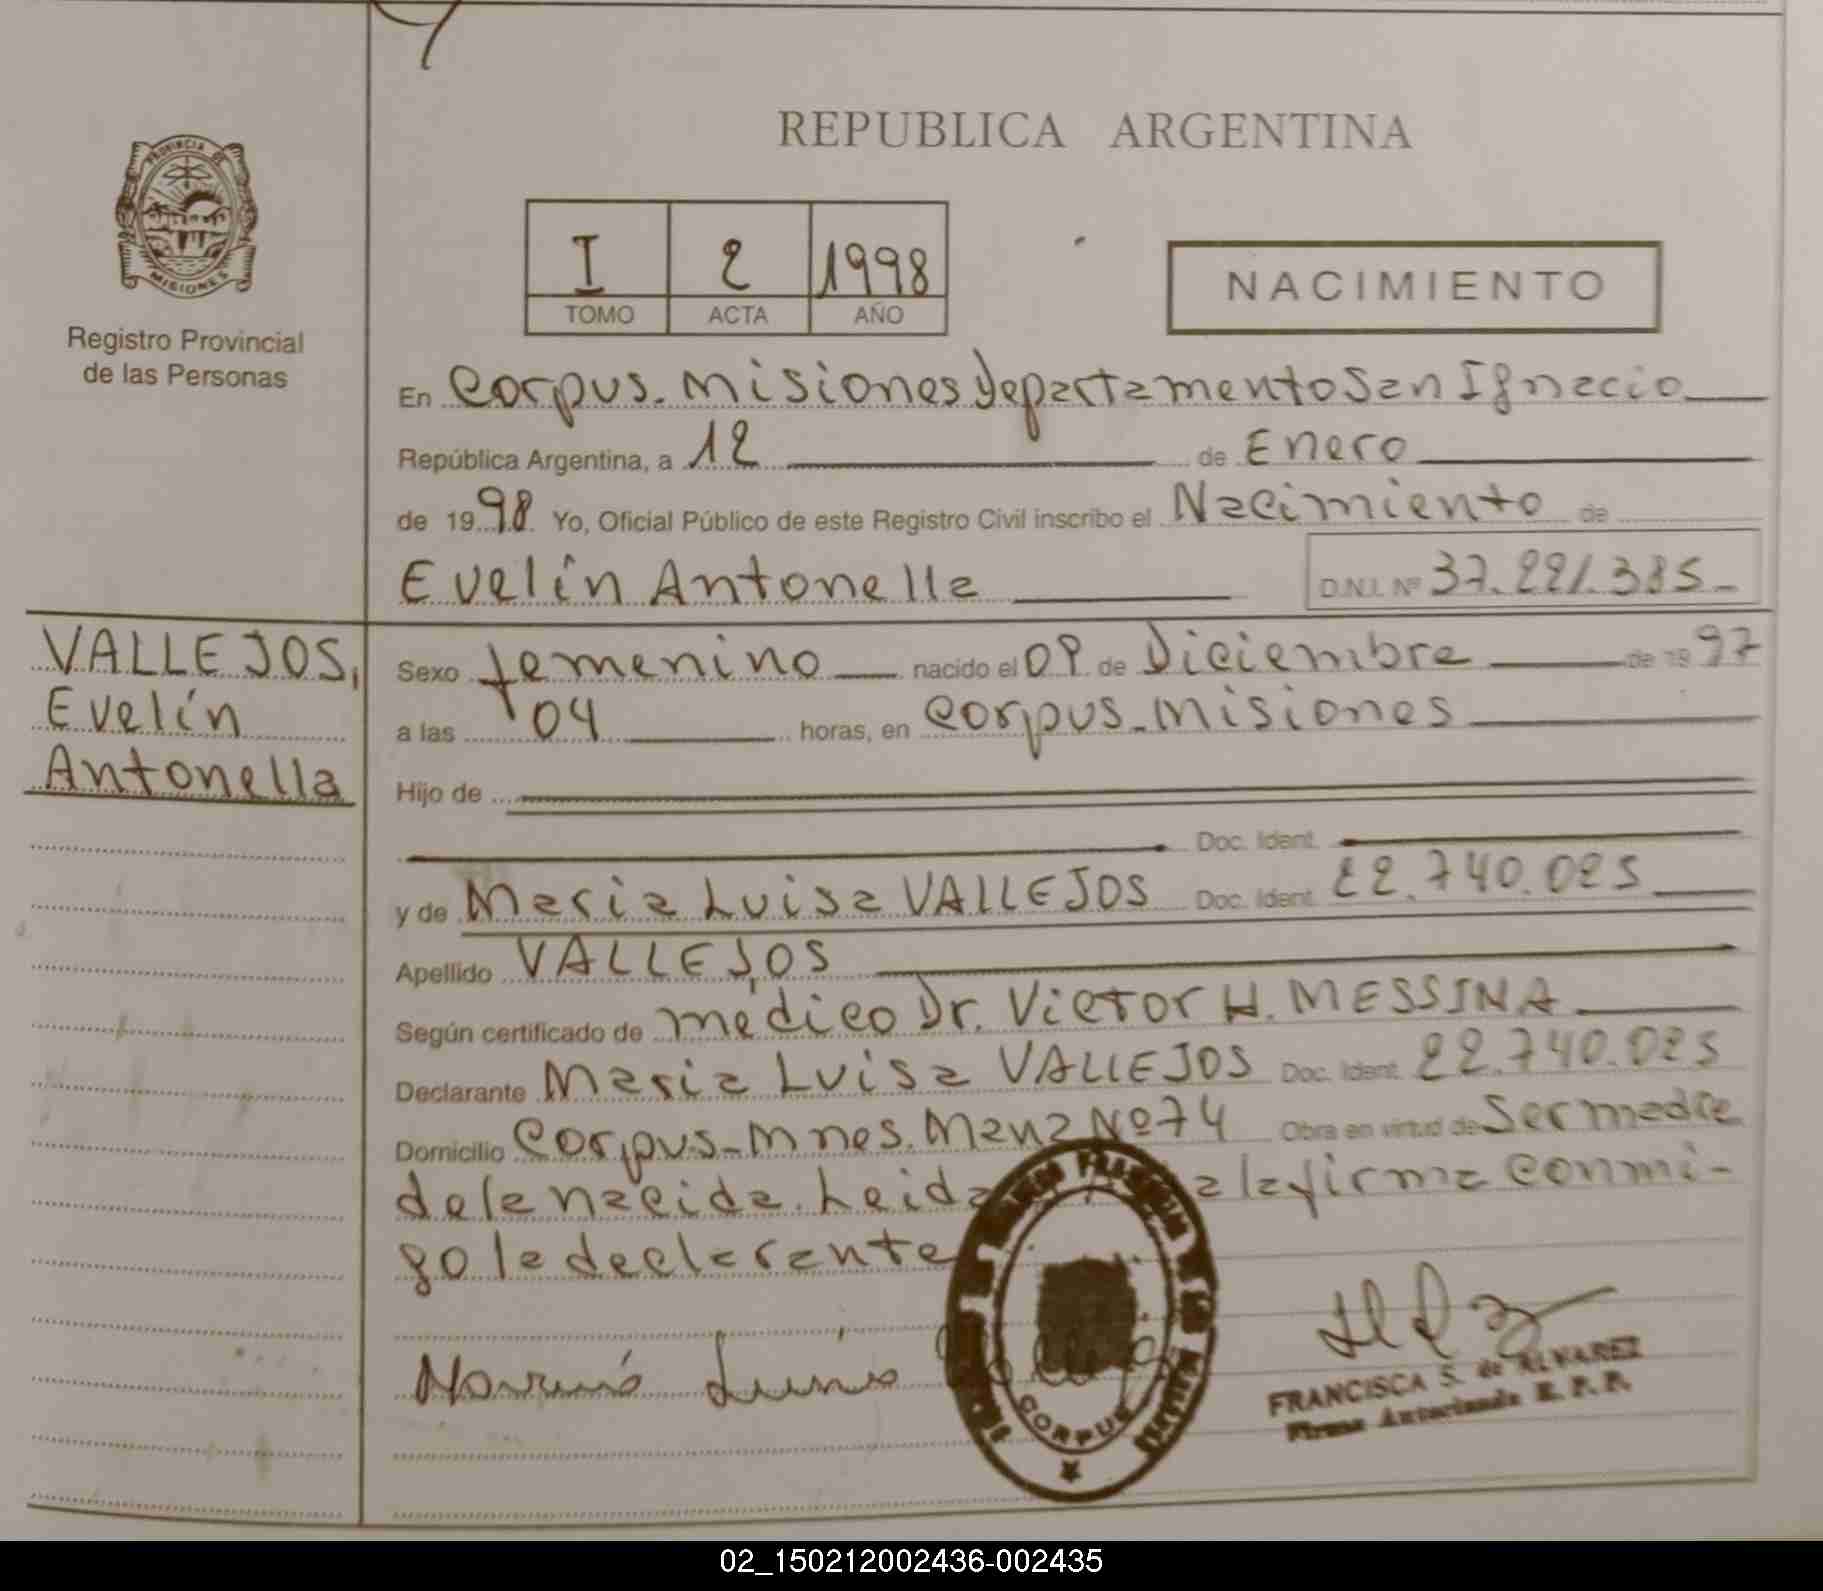 REPUBLICA ARGENTINA
PROVINCIA DE
MISIONES
Registro Provincial
de las Personas
I 2 1998
TOMO ACTA AÑO
NACIMIENTO
En Corpus. Misiones Departamento San Ignacio
República Argentina, a 12 de Enero
de 1998 Yo, Oficial Público de este Registro Civil inscribo el Nacimiento de
Evelín Antonella D.N.I. Nº 37.221.385-
VALLEJOS,
Evelín
Antonella
Sexo femenino nacido el 09 de Diciembre de 1997
a las 04 horas, en Corpus-Misiones
Hijo de
Doc. Ident.
y de Maria Luisa VALLEJOS Doc. Ident. 22.740.025
Apellido VALLEJOS
Según certificado de médico Dr. Victor H. MESSINA
Declarante Maria Luisa VALLEJOS Doc. Ident. 22.740.025
Domicilio Corpus-Mnes. Manz Nº 74 Obra en virtud de Ser madre
de la nacida. Leida la firma conmi-
go la declarante
CORPUS
FRANCISCA S. de ALVAREZ
Firma Autorizada R. P. P.
02_150212002436-002435